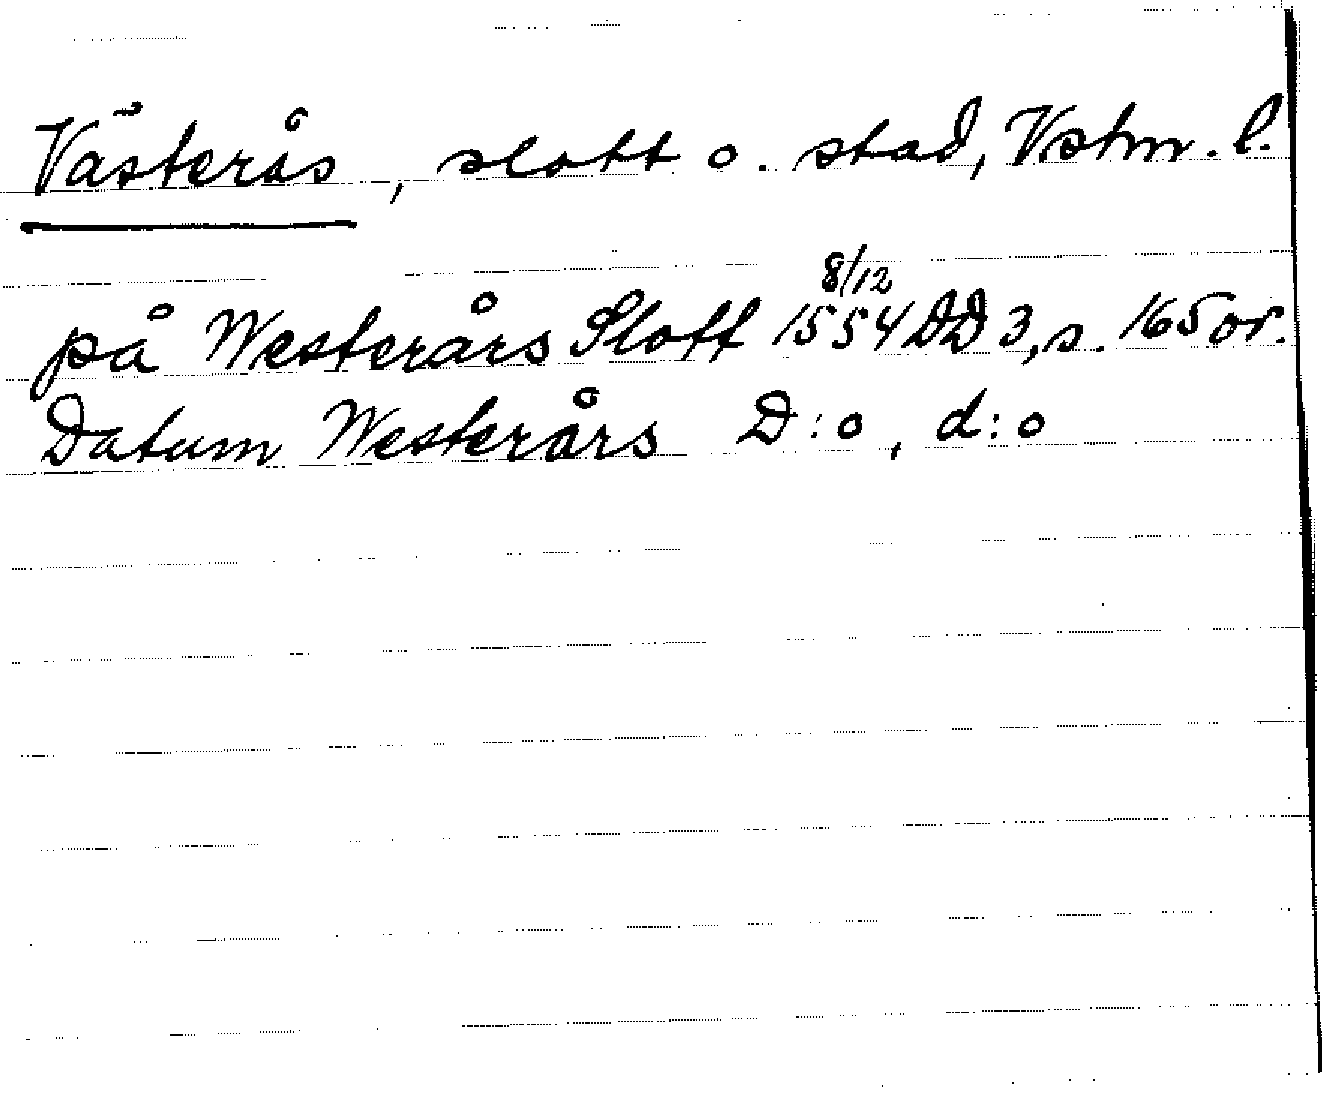 Västerås, slott o. stad, Vstm. l.
på Westerårs Slott 8/12 1554 DD 3, s. 165 or.
Datum Westerårs D:o, d:o